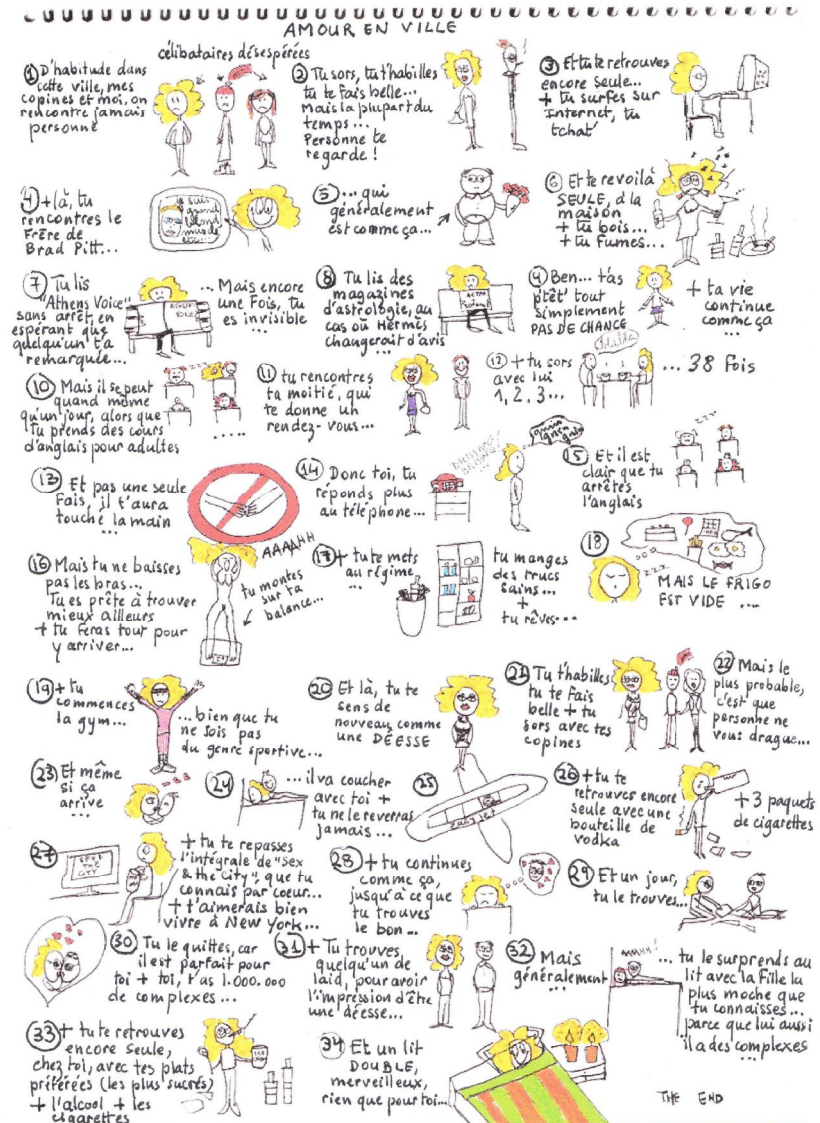 AMOUR EN VILLE
célibataires désespérées
① D'habitude dans
cette ville, mes
copines et moi, on
rencontre jamais
personne
② Tu sors, tu t'habilles
tu te fais belle...
Mais la plupart du
temps...
Personne te
regarde !
③ Et tu te retrouves
encore seule...
+ tu surfes sur
Internet, tu
tchat'
④ + là, tu
rencontres le
Frère de
Brad Pitt...
je suis
grand
blond
musclé
etc...
⑤ ... qui
généralement
est comme ça...
⑥ Et te revoilà
SEULE, à la
maison
+ tu bois...
+ tu fumes...
⑦ Tu lis
"Athens Voice"
sans arrêt, en
espérant que
quelqu'un t'a
remarquée...
ATHENS
VOICE
... Mais encore
une Fois, tu
es invisible
...
⑧ Tu lis des
magazines
d'astrologie, au
cas où Hermès
changerait d'avis
...
⑨ Ben... t'as
ptêt' tout
simplement
PAS DE CHANCE
+ ta vie
continue
comme ça
...
⑩ Mais il se peut
quand même
qu'un jour, alors que
tu prends des cours
d'anglais pour adultes
.....
⑪ tu rencontres
ta moitié, qui
te donne un
rendez-vous...
⑫ + tu sors
avec lui
1, 2, 3...
... 38 Fois
⑬ Et pas une seule
Fois, il t'aura
touché la main
...
⑭ Donc toi, tu
réponds plus
au téléphone...
⑮ Et il est
clair que tu
arrêtes
l'anglais
⑯ Mais tu ne baisses
pas les bras...
Tu es prête à trouver
mieux ailleurs
+ tu feras tout pour
y arriver...
AAAAHH
tu montes
sur ta
balance...
⑰ + tu te mets
au régime
...
tu manges
des trucs
sains...
+
tu rêves...
⑱
zzz
MAIS LE FRIGO
EST VIDE ....
⑲ + tu
commences
la gym...
...bien que tu
ne sois pas
du genre sportive...
⑳ Et là, tu te
sens de
nouveau comme
une DÉESSE
㉑ Tu t'habilles
tu te fais
belle + tu
sors avec tes
copines
㉒ Mais le
plus probable,
c'est que
personne ne
vous drague...
㉓ Et même
si ça
arrive
...
㉔ ... il va coucher
avec toi +
tu ne le reverras
jamais...
㉕
easy jet
㉖ + tu te
retrouves encore
seule avec une
bouteille de
vodka
+ 3 paquets
de cigarettes
㉗
SEX &
THE
CITY
+ tu te repasses
l'intégrale de "Sex
& the City", que tu
connais par coeur...
+ t'aimerais bien
vivre à New York...
㉘ + tu continues
comme ça,
jusqu'à ce que
tu trouves
le bon...
㉙ Et un jour,
tu le trouves...
㉚ Tu le quittes, car
il est parfait pour
toi + toi, t'as 1.000.000
de complexes ...
㉛ + Tu trouves
quelqu'un de
laid, pour avoir
l'impression d'être
une déesse...
㉜ Mais
généralement
...
MMHH!
... tu le surprends au
lit avec la Fille la
plus moche que
tu connaisses...
parce que lui aussi
il a des complexes
㉝ + tu te retrouves
encore seule,
chez toi, avec tes plats
préférées (les plus sucrés)
+ l'alcool + les
cigarettes
㉞ Et un lit
DOUBLE,
merveilleux,
rien que pour toi...
THE END